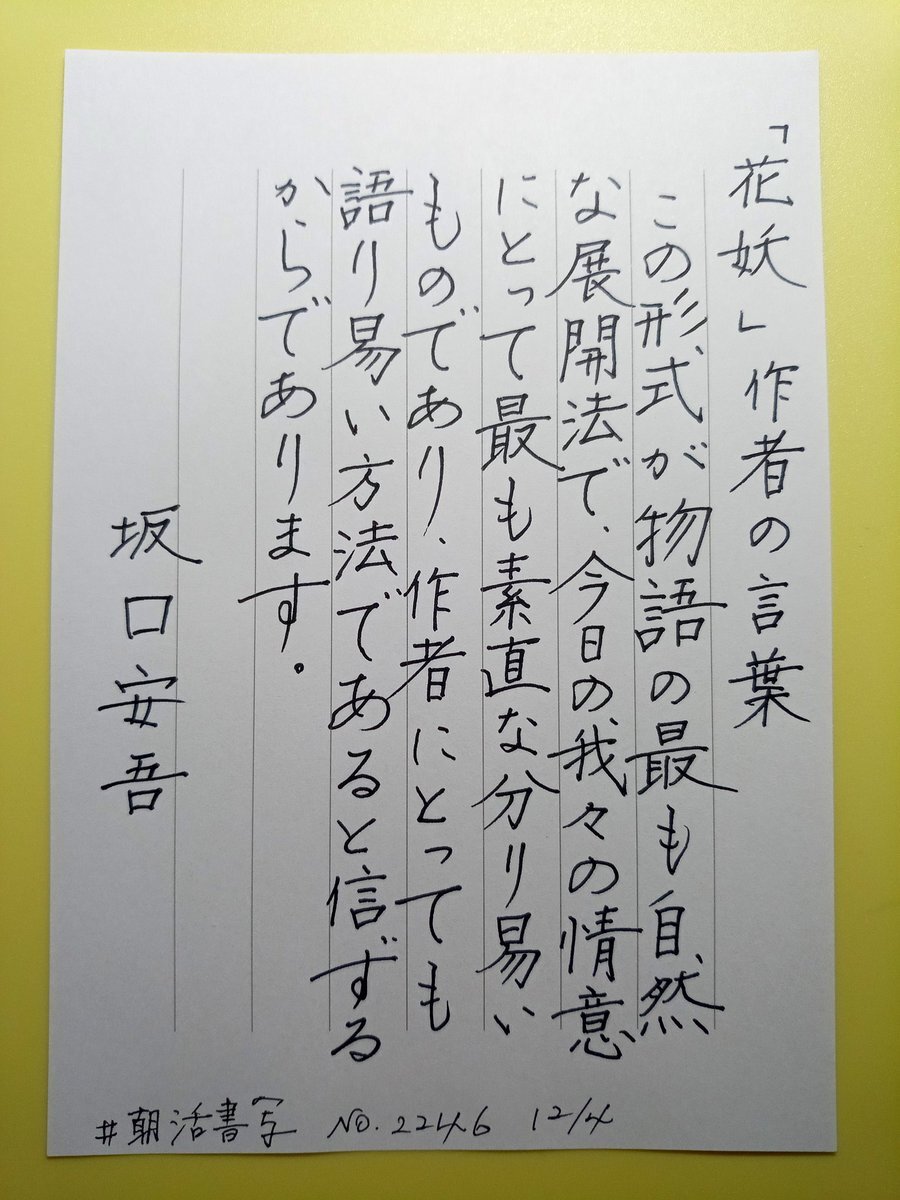 「花妖」作者の言葉
この形式が物語の最も自然
な展開法で、今日の我々の情意
にとって最も素直な分り易い
ものであり、作者にとっても
語り易い方法であると信ずる
からであります。
坂口安吾
#朝活書写 NO.2246 12/4